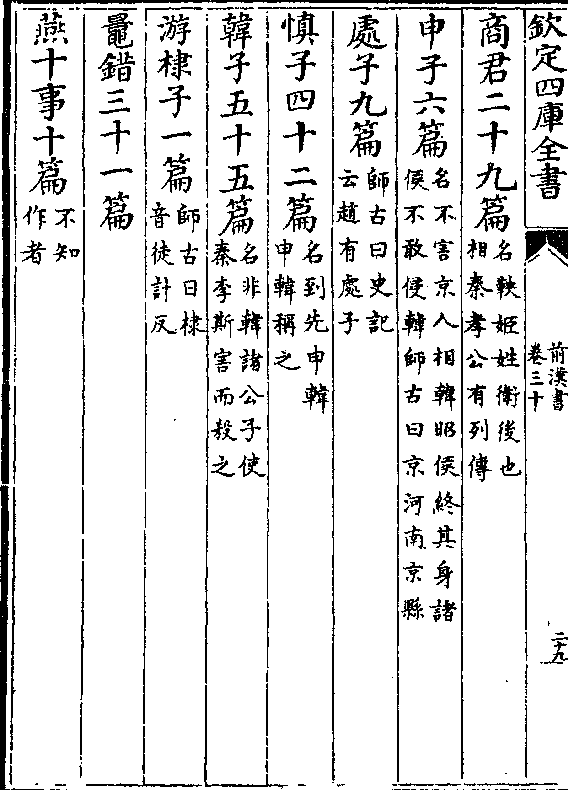 欽定四庫全書
前漢書
卷三十
二十九
商君二十九篇名鞅姬姓衛後也
相秦孝公有列傳
申子六篇名不害京人相韓昭侯終其身諸
侯不敢侵韓師古曰京河南京縣
處子九篇師古曰史記
云趙有處子
慎子四十二篇名到先申韓
申韓稱之
韓子五十五篇名非韓諸公子使
秦李斯害而殺之
游棣子一篇師古曰棣
音徒計反
鼂錯三十一篇
燕十事十篇不知
作者